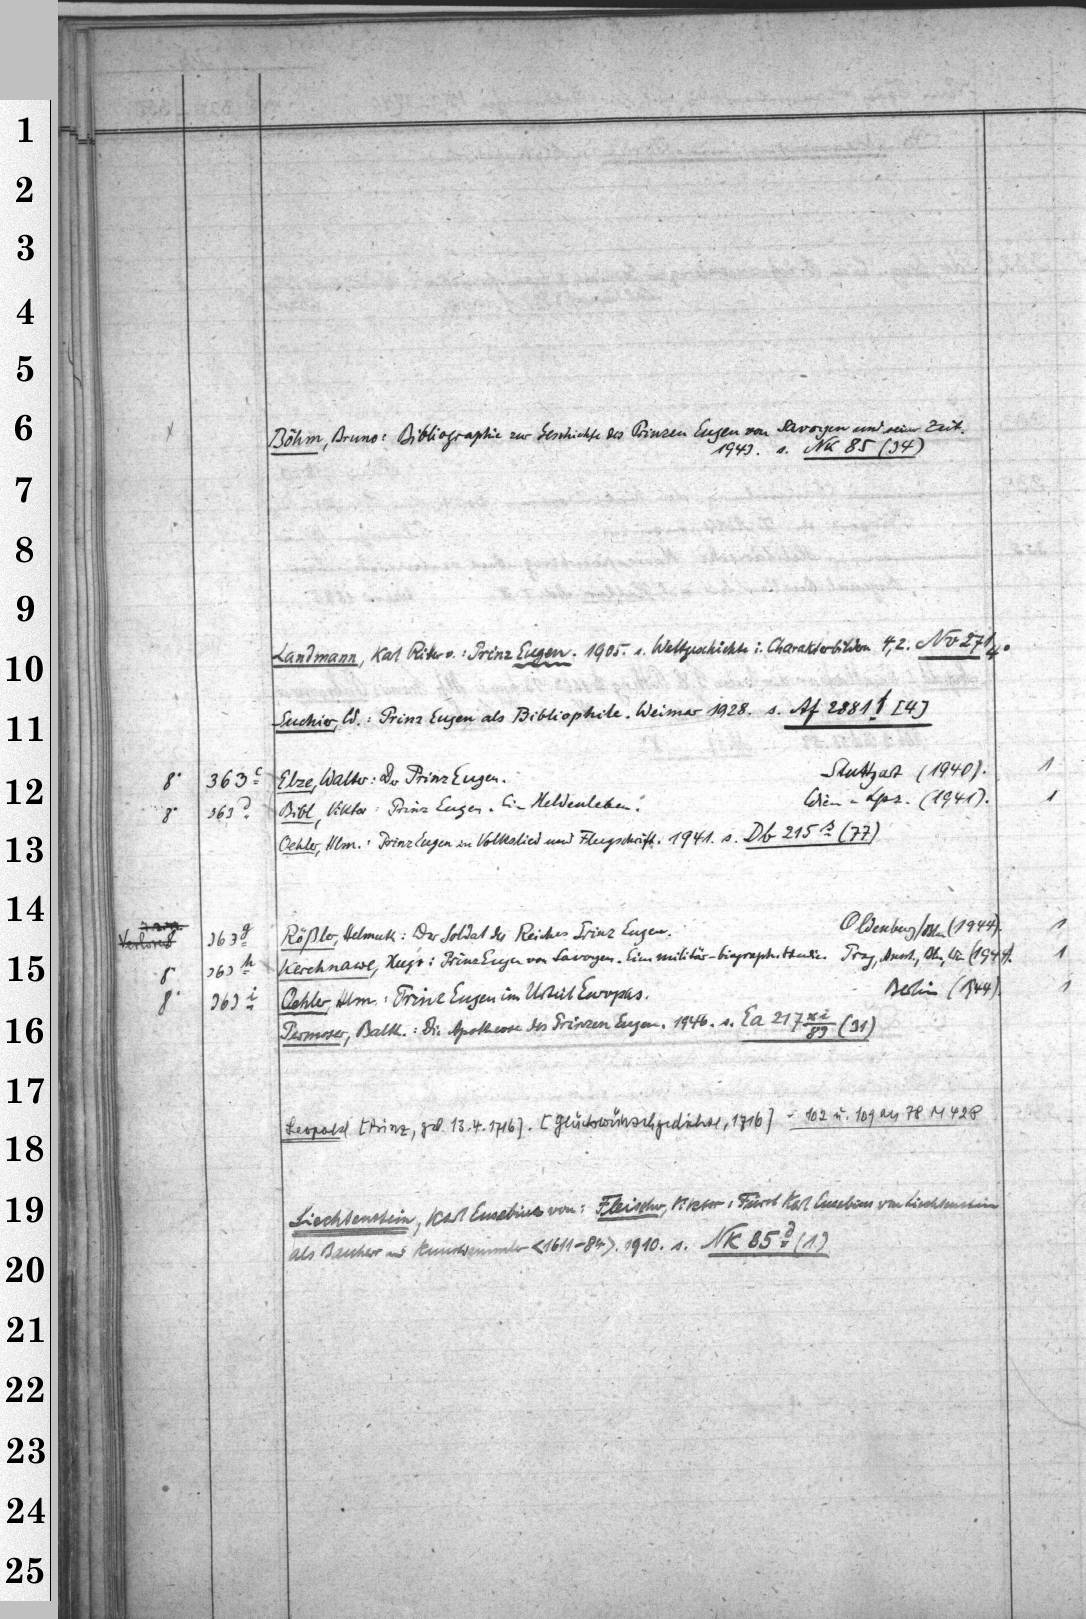 1
2
3
4
5
6
Böhm, Bruno: Bibliographie zur Geschichte des Prinzen Eugen von Savoyen und seiner Zeit.
1943. s. NK 85 (34)
7
8
9
10
Landmann, Karl Ritter v.: Prinz Eugen. 1905. s. Weltgeschichte i. Charakterbildern 4,2. Nv 271/4°
11
Suchier, W.: Prinz Eugen als Bibliophile. Weimar 1928. s. Af 2881 f [4]
12
8° 363 c Elze, Walter: Der Prinz Eugen. Stuttgart (1940). 1
8° 363 d Bibl, Viktor: Prinz Eugen. Ein Heldenleben. Wien - Lpz. (1941). 1
13
Oehler, Hlm.: Prinz Eugen in Volkslied und Flugschrift. 1941. s. Db 215 (77)
14
Verloren 8° 363 g Rößler, Helmuth: Der Soldat des Reiches Prinz Eugen. Oldenburg/Bln (1944). 1
15
8° 363 h Kerchnawe, Hugo: Prinz Eugen von Savoyen. Eine militär-biograph. Studie. Prag, Amst., Bln, Wien (1944). 1
8° 363 i Oehler, Hlm.: Prinz Eugen im Urteil Europas. Berlin (1944). 1
16
Permoser, Balth.: Die Apotheose des Prinzen Eugen. 1946. s. Ea 217 xi/89 (31)
17
18
Leopold [Prinz, geb. 13.4.1716]. [Glückwünschgedichte, 1716] - 102 u. 109 an 78 M 428
19
Liechtenstein, Karl Eusebius von: Fleischer, Viktor: Fürst Karl Eusebius von Liechtenstein
als Bauherr und Kunstsammler <1611-84>. 1910. s. NK 85 d (1)
20
21
22
23
24
25